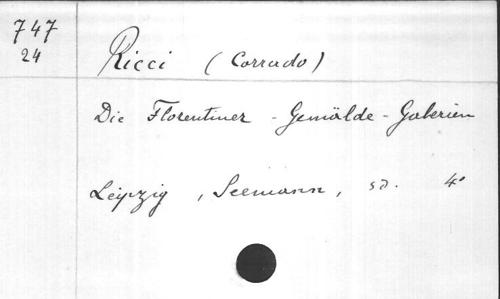 747
24
Ricci (Corrado)
Die Florentiner - Gemälde - Galerien
Leipzig, Seemann, sd. 4°